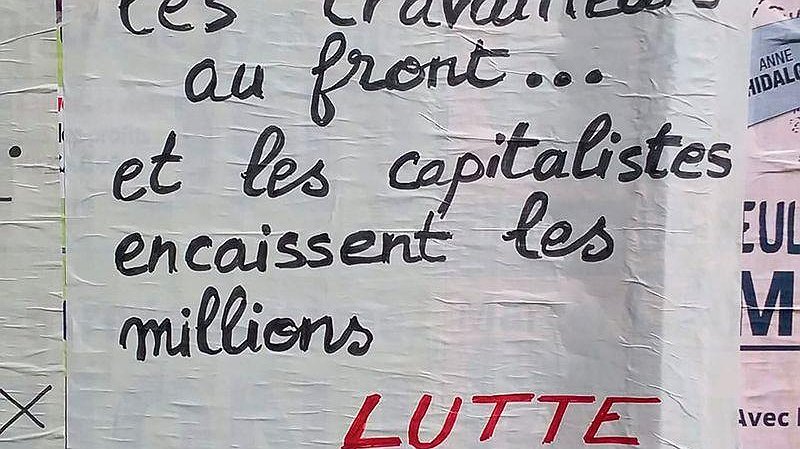 les travailleurs
au front...
et les capitalistes
encaissent les
millions
LUTTE
ANNE
HIDALGO
EUL
M
Avec